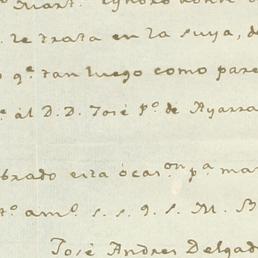 se trata en la suya, de
q.e tan luego como pare
al D. D. José p.o de Ayarza
brado esta ocas.on p.a man
am.o s. s. q. s. M. B.
José Andres Delgado